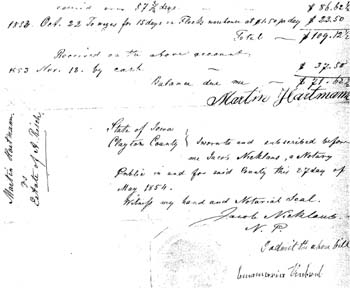 57 3/4 days. $ 86.62 1/2
1853. Oct. 22 To wages for 15 days in warehouse at $1.50 pr day $ 22.50
Total — $ 109.12 1/2
Received on the above account
1853 Nov. 12. by cash $ 37.50
Balance due me — $ 71.62
Martin Hartmann
State of Iowa
Clayton County Sworn to and subscribed before
me Jacob Nicklaus, a Notary
Public in and for said County this 27 day of
May 1854.
Witness my hand and Notarial Seal.
Jacob Nicklaus
N. P.
I admit the above bill
Martin Hartmann
vs
Estate of A.